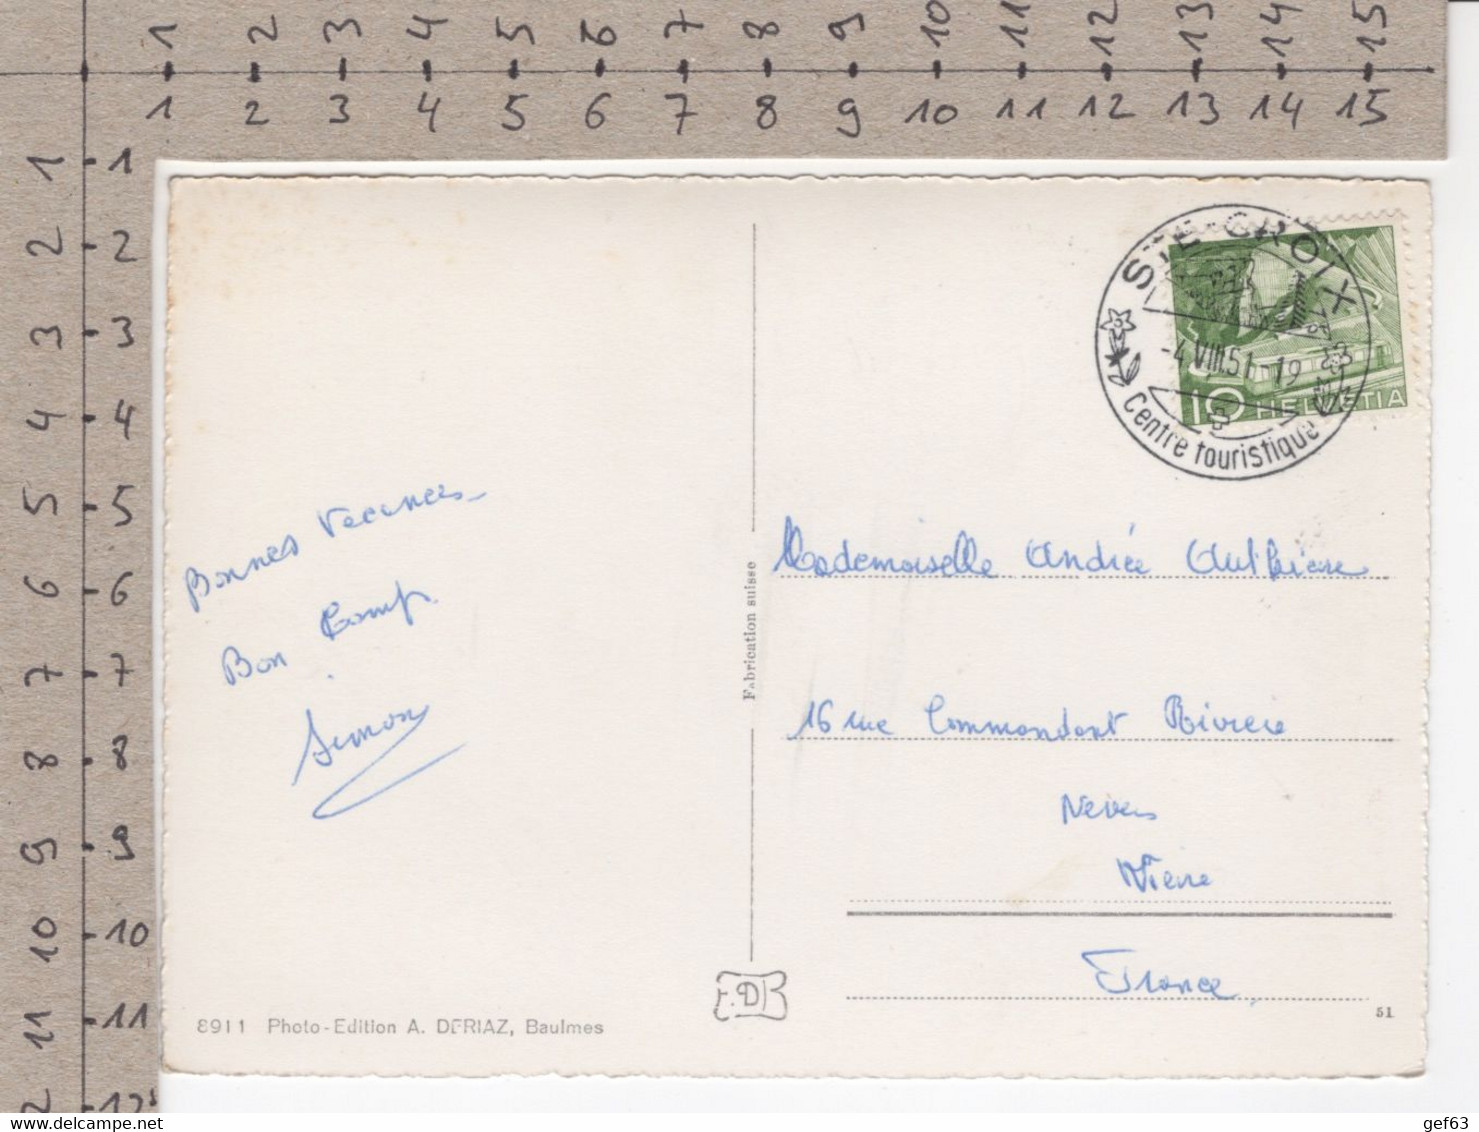 1 2 3 4 5 6 7 8 9 10 11 12 13 14 15
1 2 3 4 5 6 7 8 9 10 11 12 13 14 15
1 1
2 2
3 3
4 4
5 5
6 6
7 7
8 8
9 9
10 10
11 11
2 12
STE-CROIX
-4.VIII.51-19
Centre touristique
10 HELVETIA
Bonnes Vacances
Bon Camp.
Simon
Fabrication suisse
Mademoiselle Andrée
16 rue Commandant Riviere
Nevers
Nièvre
France
8911 Photo-Edition A. DERIAZ, Baulmes
51
gef63